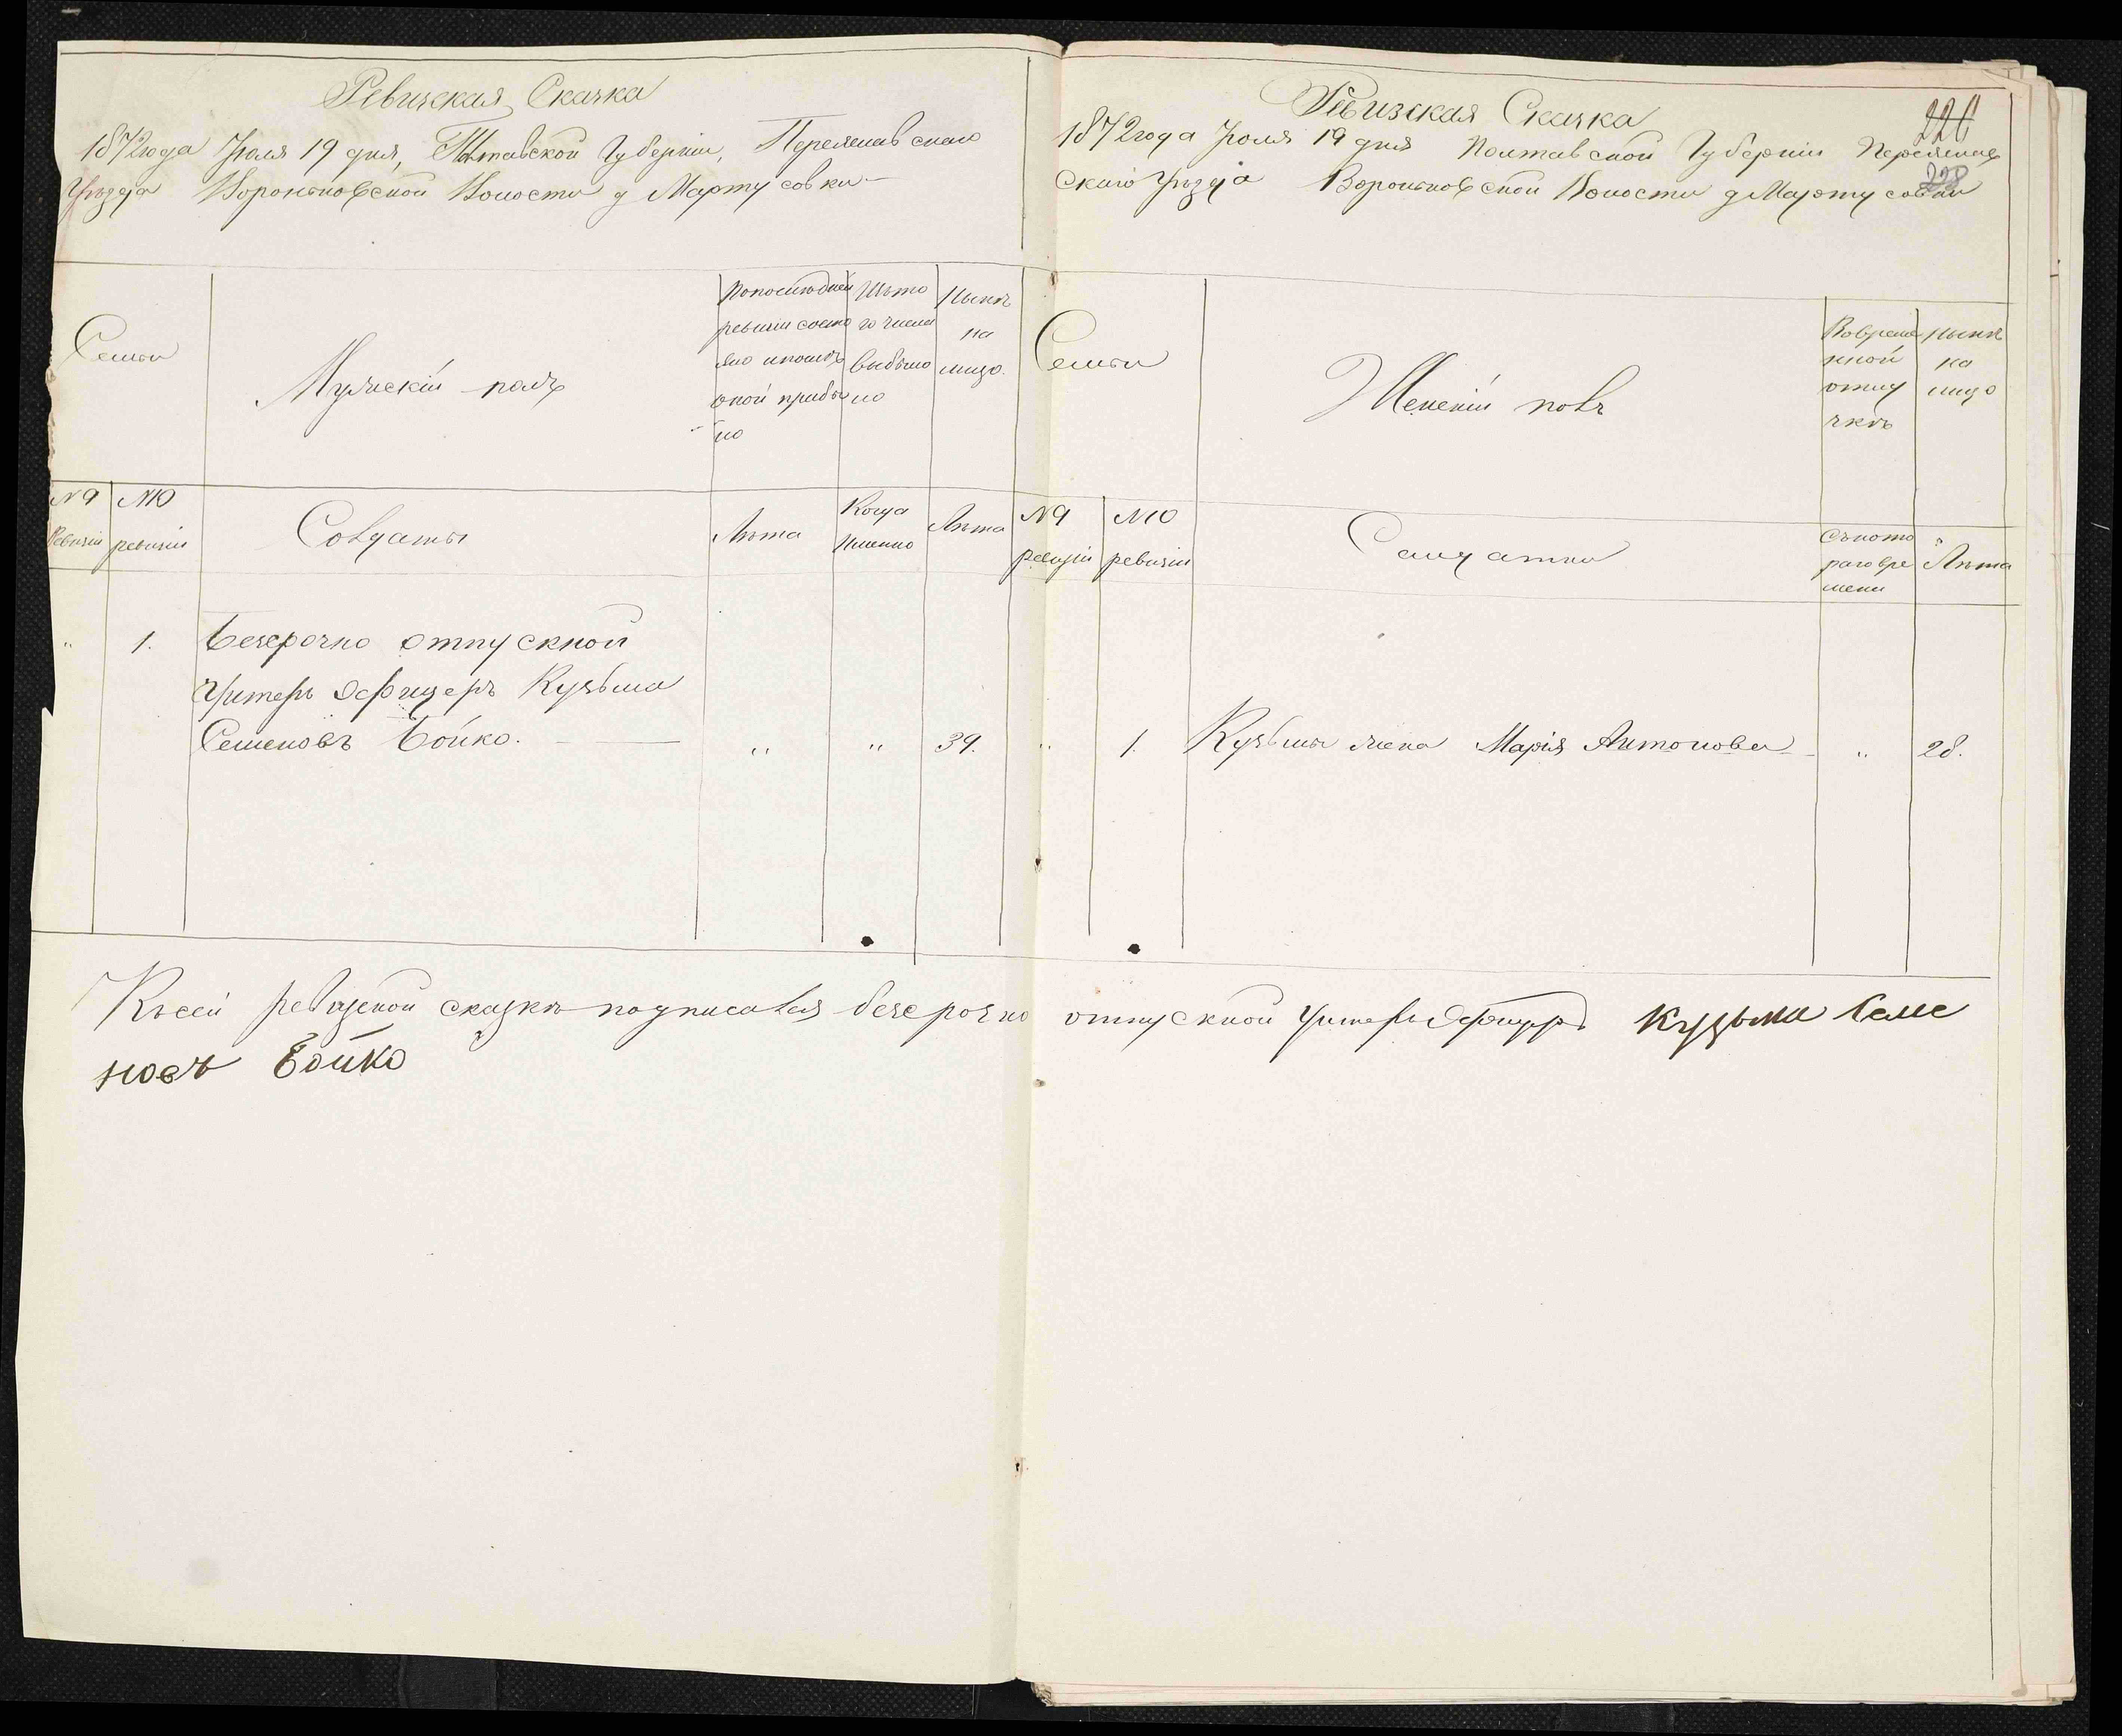 Ревизская Сказка
1872 года Іюля 19 дня, Полтавской Губерніи, Переяславскаго
Уѣзда Вороньковской Волости д Мартусовки
Семьи
Мужескій полъ
По последней
ревизіи состо
яло и после
оной прибы
ло
Изъ то
го числа
выбыло
Нынѣ
на
лицо.
№ 9
Ревизіи
№ 10
ревизіи
Солдаты
Лѣта
Когда
Именно
Лѣта
" 1. Безсрочно отпускной
Унтеръ Офицеръ Кузьма
Семеновъ Бойко. " " 39.
226
228
Ревизская Сказка
1872 года Іюля 19 дня Полтавской Губерніи Переяслав
скаго Уѣзда Вороньковской Волости д Мартусовки
Семьи
Женскій полъ
Во време
нной
отлу
чкѣ
Нынѣ
на
лицо
№ 9
ревизіи
№ 10
ревизіи
Солдатки
Съ кото
раго вре
мени
Лѣта
" 1. Кузьмы жена Марія Антонова " 28.
Къ сей ревизской сказкѣ подписался безсрочно отпускной Унтеръ Офицеръ Кузьма Семе
новъ Бойко